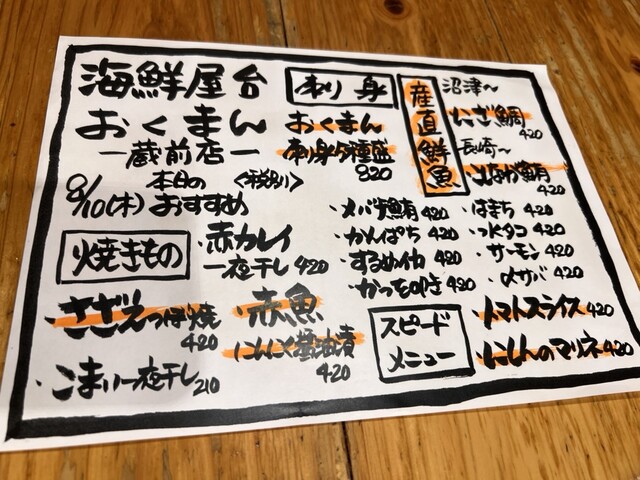 海鮮屋台
おくまん
ー蔵前店ー
本日の <税別>
8/10(木) おすすめ
刺身
おくまん
刺身5種盛
820
産直鮮魚
沼津〜
にざ鯛
420
長崎〜
こなが鮪
420
・メバチ鮪 420
・かんぱち 420
・するめイカ 420
・かつをたたき 420
・はまち 420
・水タコ 420
・サーモン 420
・〆サバ 420
焼きもの
・赤カレイ
一夜干し 420
・さざえつぼ焼
420
・こまい一夜干し 210
・赤魚
にんにく醤油漬
420
スピード
メニュー
・トマトスライス 420
・にしんのマリネ 420